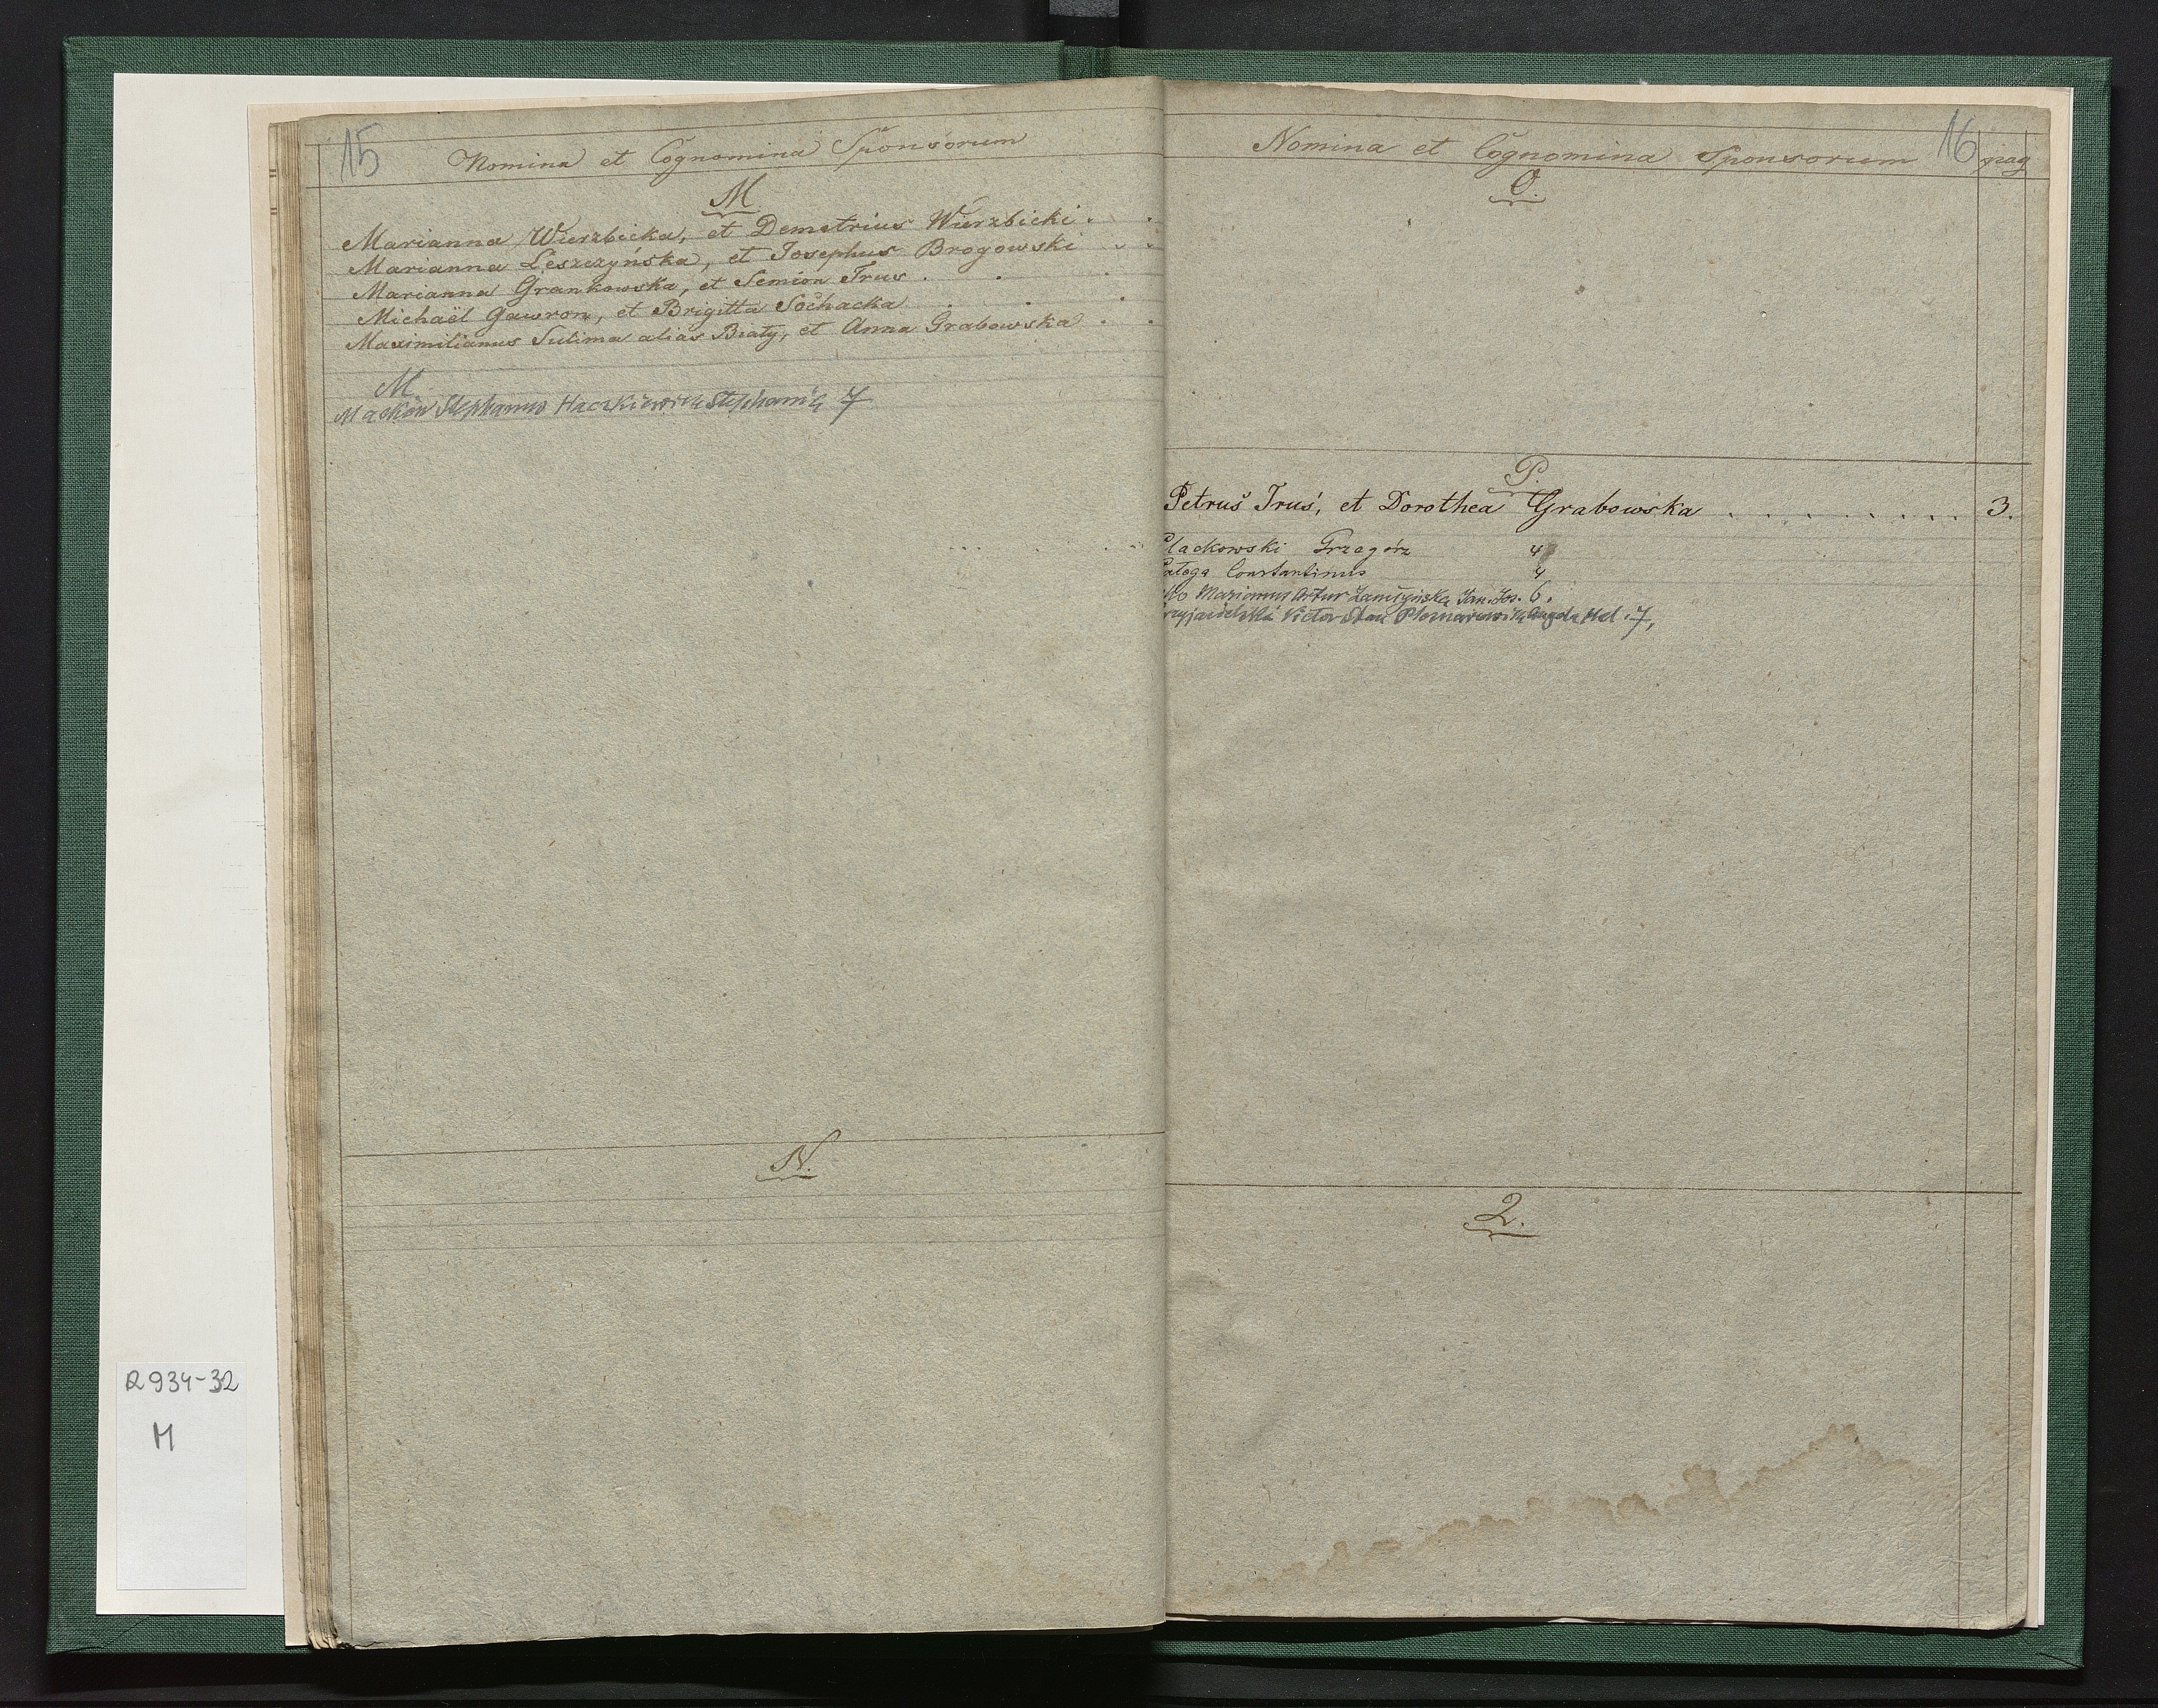 15
Nomina et Cognomina Sponsorum
M
Marianna Wierzbicka, et Demetrius Wierzbicki . .
Marianna Leszczyńska, et Josephus Brogowski . .
Marianna Grankowska, et Semion Trus . . .
Michaël Gawron, et Brigitta Sochacka . . .
Maximilianus Sulima alias Biały, et Anna Grabowska . .
M
Maćków Stephanus Haczkiewicz Stephania 7
N.
R 934-32
M
16
Nomina et Cognomina Sponsorum pag
O.
P.
Petrus Trus, et Dorothea Grabowska . . . . . . . . . 3.
Plackowski Grzegórz 4
Constantinus 4
Marianus Artur Jan. Jos. 6.
Victor Stan Magda Hel. 7,
Q.